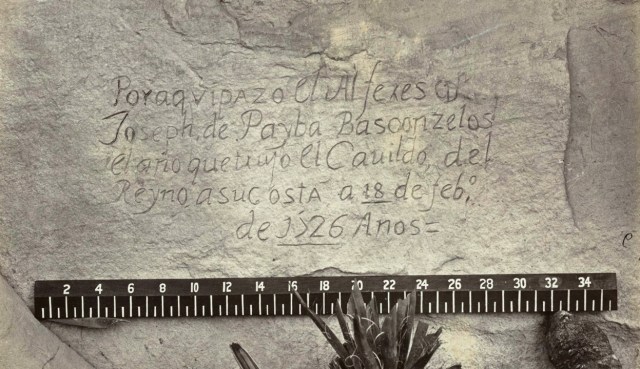 Por aqvi pazo el Alferes Dⁿ
Joseph de Payba Basconzelos
el año que trujo el Cauildo, del
Reyno a su costa a 18 de febº
de 1526 Años=
2 4 6 8 10 12 14 16 18 20 22 24 26 28 30 32 34